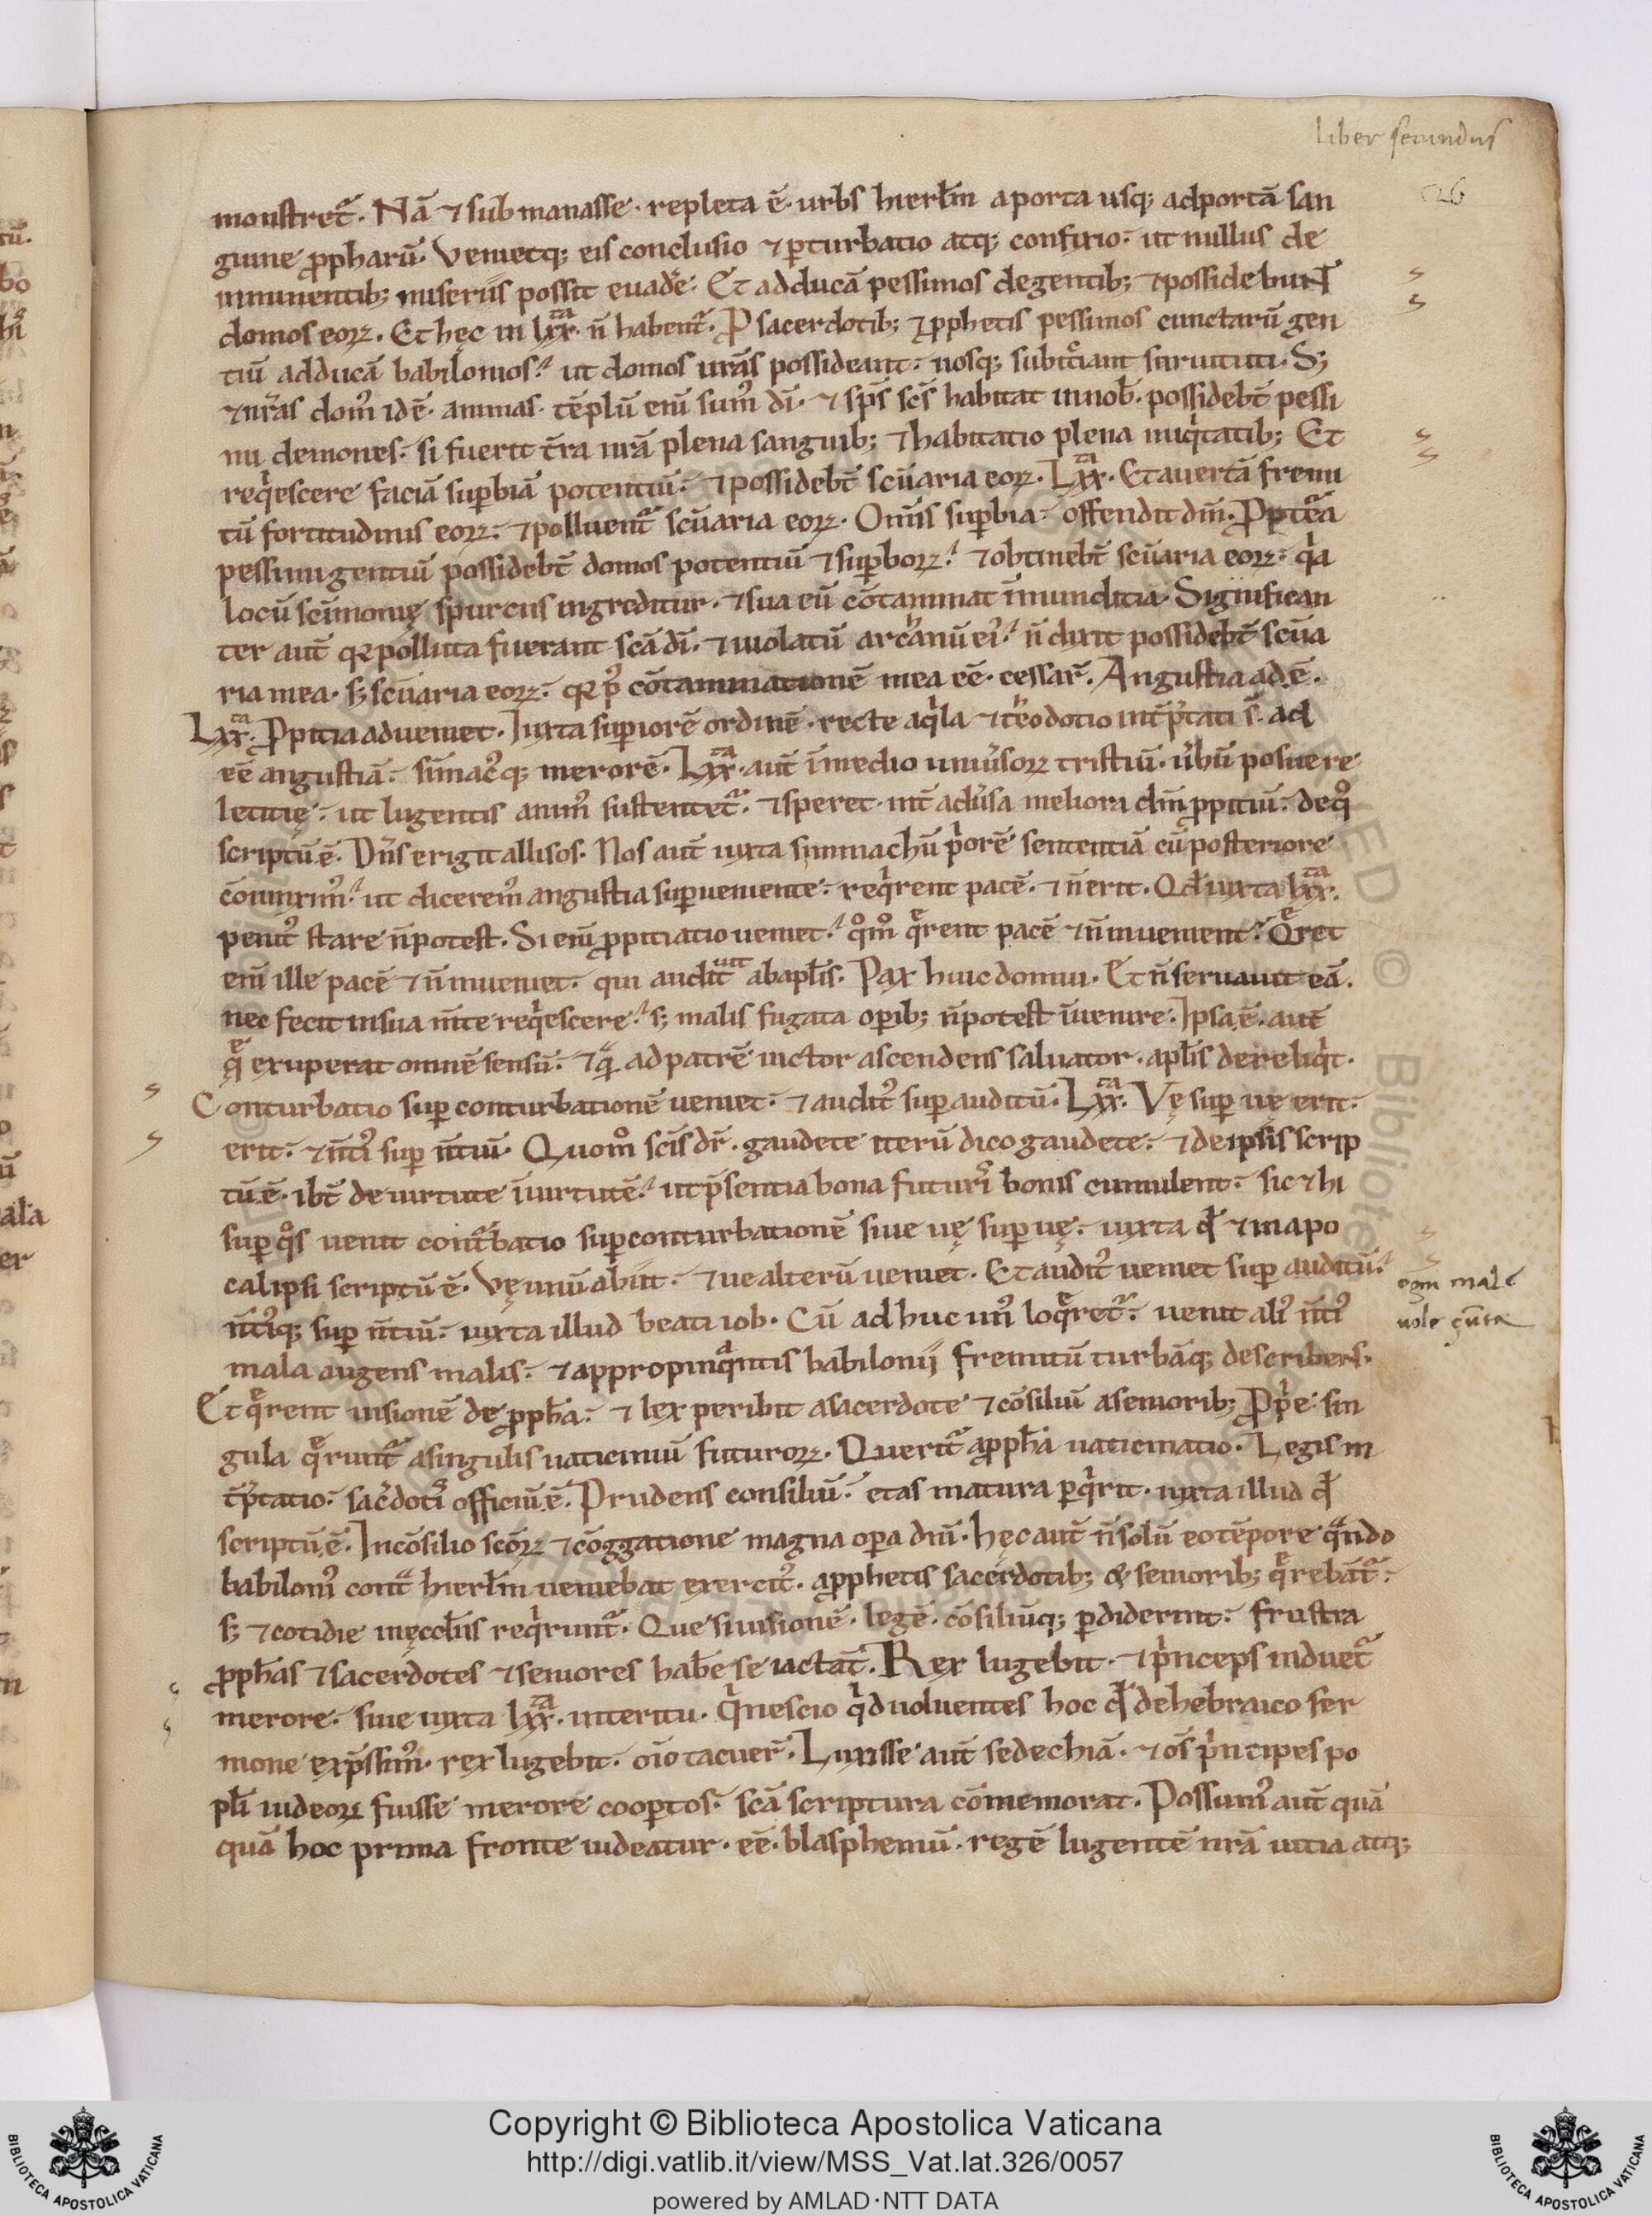 liber secundus
26
monstret᷑. Nā ⁊ sub manasse. repleta ē. urbs hierłm a porta usq; ad portā san
guine ꝓphaꝛū. Venietq; eis conclusio ⁊ ꝑturbatio atq; confixio. ut nullus de
imminentib; miseriis possit euadē. Et adducā pessimos de gentib; ⁊ possidebunt
domos eoꝝ. Et hęc in lxx. n̄ habent᷑. P̄ sacerdotib; ⁊ ꝓphetis pessimos cunctarū gen
tiū adducā babilonios. ut domos uras possideant. uosq; subiciant seruituti. S;
⁊ nras dom᷒ id ē. animas. tēplū eni sum᷒ di. ⁊ sp̄s sc̄s habitat in nob̄. possidebt̄ pessi
mi demones. si fuerit tr̄a nrā plena sanguib; ⁊ habitatio plena iniqͥtatib; Et
reqͥescere faciā suꝑbiā potentiū. ⁊ possidebt̄ scuaria eoꝝ. Lxx. Et auertā fremi
tū fortitudinis eoꝝ. ⁊ polluent᷑ scuaria eoꝝ. Omis suꝑbia. offendit dm̄. Ꝓptea
pessimi gentiū possidebt̄ domos potentiū ⁊ suꝑboꝝ. ⁊ obtinebt̄ scuaria eoꝝ. qͥa
locū scimonię spurcus ingreditur. ⁊ sua eū cōtaminat īmunditia. Significan
ter aut̄ qꝛ polluta fuerant scā di. ⁊ uiolatū arcanū ei᷒. n̄ dixit possidebt̄ scua
ria mea. s; scuaria eoꝝ. qꝛ p᷒ cōtaminationē mea eē. cessar̄. Angustia ad.ē.
Lxx. Ꝓpitia adueniet. Iuxta superiorē ordinē. recte aqͥla ⁊ theodotio int̄p̄tati s̄. ad
eē angustiā. simac᷒q; merorē. Lxx. aut̄ ī medio uniuersoꝝ tristiū. ūbū posuere
letitię. ut lugentis anim᷒ sustentet᷑. ⁊ speret. int̄ adūsa meliora dm̄ ꝓpitiū. de qͦ
scriptū ē. Dn̄s erigit allisos. Nos aut̄ iuxta simmachū pͥorē sententiā cū posteriore
cōiunxim᷒. ut dicerem᷒ angustia suꝑueniente. reqͥrent pacē. ⁊ n̄ erit. Qd̄ iuxta lxx.
penit᷒ stare n̄ potest. Si eni ꝓpitiatio ueniet. qͦm̊ qͤrent pacē ⁊ n̄ inuenient. Qͤret
eni ille pacē ⁊ n̄ inueniet. qui audit uit ab apłis. Pax huic domui. Et n̄ seruauit eā.
nec fecit in sua mīte reqͥescere. s; malis fugata oꝑib; n̄ potest īuenire. Ipsa ē. aut̄
qͤ exuperat omnē sensū. ⁊ qᷓ ad patrē uictor ascendens saluator. apłis dereliqͥt.
Conturbatio suꝑ conturbationē ueniet. ⁊ audit᷒ suꝑ auditū. Lxx. Vę suꝑ uę erit.
erit. ⁊ nti᷒ suꝑ ntiū. Quom̊ scis dr̄. gaudete iterū dico gaudete. ⁊ de ipsis scrip
tū ē. ibt̄ de uirtute ī uirtutē. ut p̄sentia bona futuri᷒ bonis cumulent. sic ⁊ hi
suꝑ qͦs uenit cont᷑batio suꝑ conturbationē siue uę suꝑ uę. iuxta qd̄ ⁊ in apo
calipsi scriptū ē. Vę unū abiit. ⁊ ue alterū ueniet. Et audit᷒ ueniet suꝑ auditū.
nti᷒q; suꝑ ntiū. iuxta illud beati iob. Cū ad huc un᷒ loqͤret᷑. uenit ali᷒ nti᷒
mala augens malis. ⁊ appropinqᷓntis babilonij fremitū turbāq; describens.
Et qͤrent uisionē de ꝓpħa. ⁊ lex peribit a sacerdote ⁊ cōsiliū a senioribus; Ꝓpͥe. sin
gula qͤrunt᷑ a singulis uaticiniū futuroꝝ. Querit᷑ a ꝓpħa uaticinatio. Legis in
t̄p̄tatio. sac̄doti᷒ officiū ē. Prudens consiliū. etas matura ꝑqͥrit. iuxta illud qd̄
scriptū ē. In cōsilio scōꝝ ⁊ cōggatione magna oꝑa dni. hęc aut̄ n̄ solū eo tēpore qᷓndo
babiloni᷒ contᷓ hierłm ueniebat exercit᷒. a ꝓphetis sacerdotib; & seniorib; qͤrebāt᷑.
s; ⁊ cotidie in ęccłiis reqͥrunt᷑. Que si uisionē. legē. cōsiliūq; ꝑdiderint. frustra
ꝓpħas ⁊ sacerdotes ⁊ seniores habe se iactāt. Rex lugebit. ⁊ pͥnceps induet᷑
merore. siue iuxta lxx. interitu. Qͥ nescio qͥd uoluentes hoc qd̄ de hebraico ser
mone exp̄ssim᷒. rex lugebit. oīo tacuer̄. Luxisse aut̄ sedechiā. ⁊ os̄ pͥncipes po
płi iudeoꝝ fuisse merore cooꝑtos. scā scriptura cōmemorat. Possum᷒ aut̄ quā
quā hoc prima fronte uideatur. eē. blasphemū. regē lugentē nrā uitia atq;
Copyright © Biblioteca Apostolica Vaticana
http://digi.vatlib.it/view/MSS_Vat.lat.326/0057
powered by AMLAD·NTT DATA
BIBLIOTECA APOSTOLICA VATICANA
BIBLIOTECA APOSTOLICA VATICANA